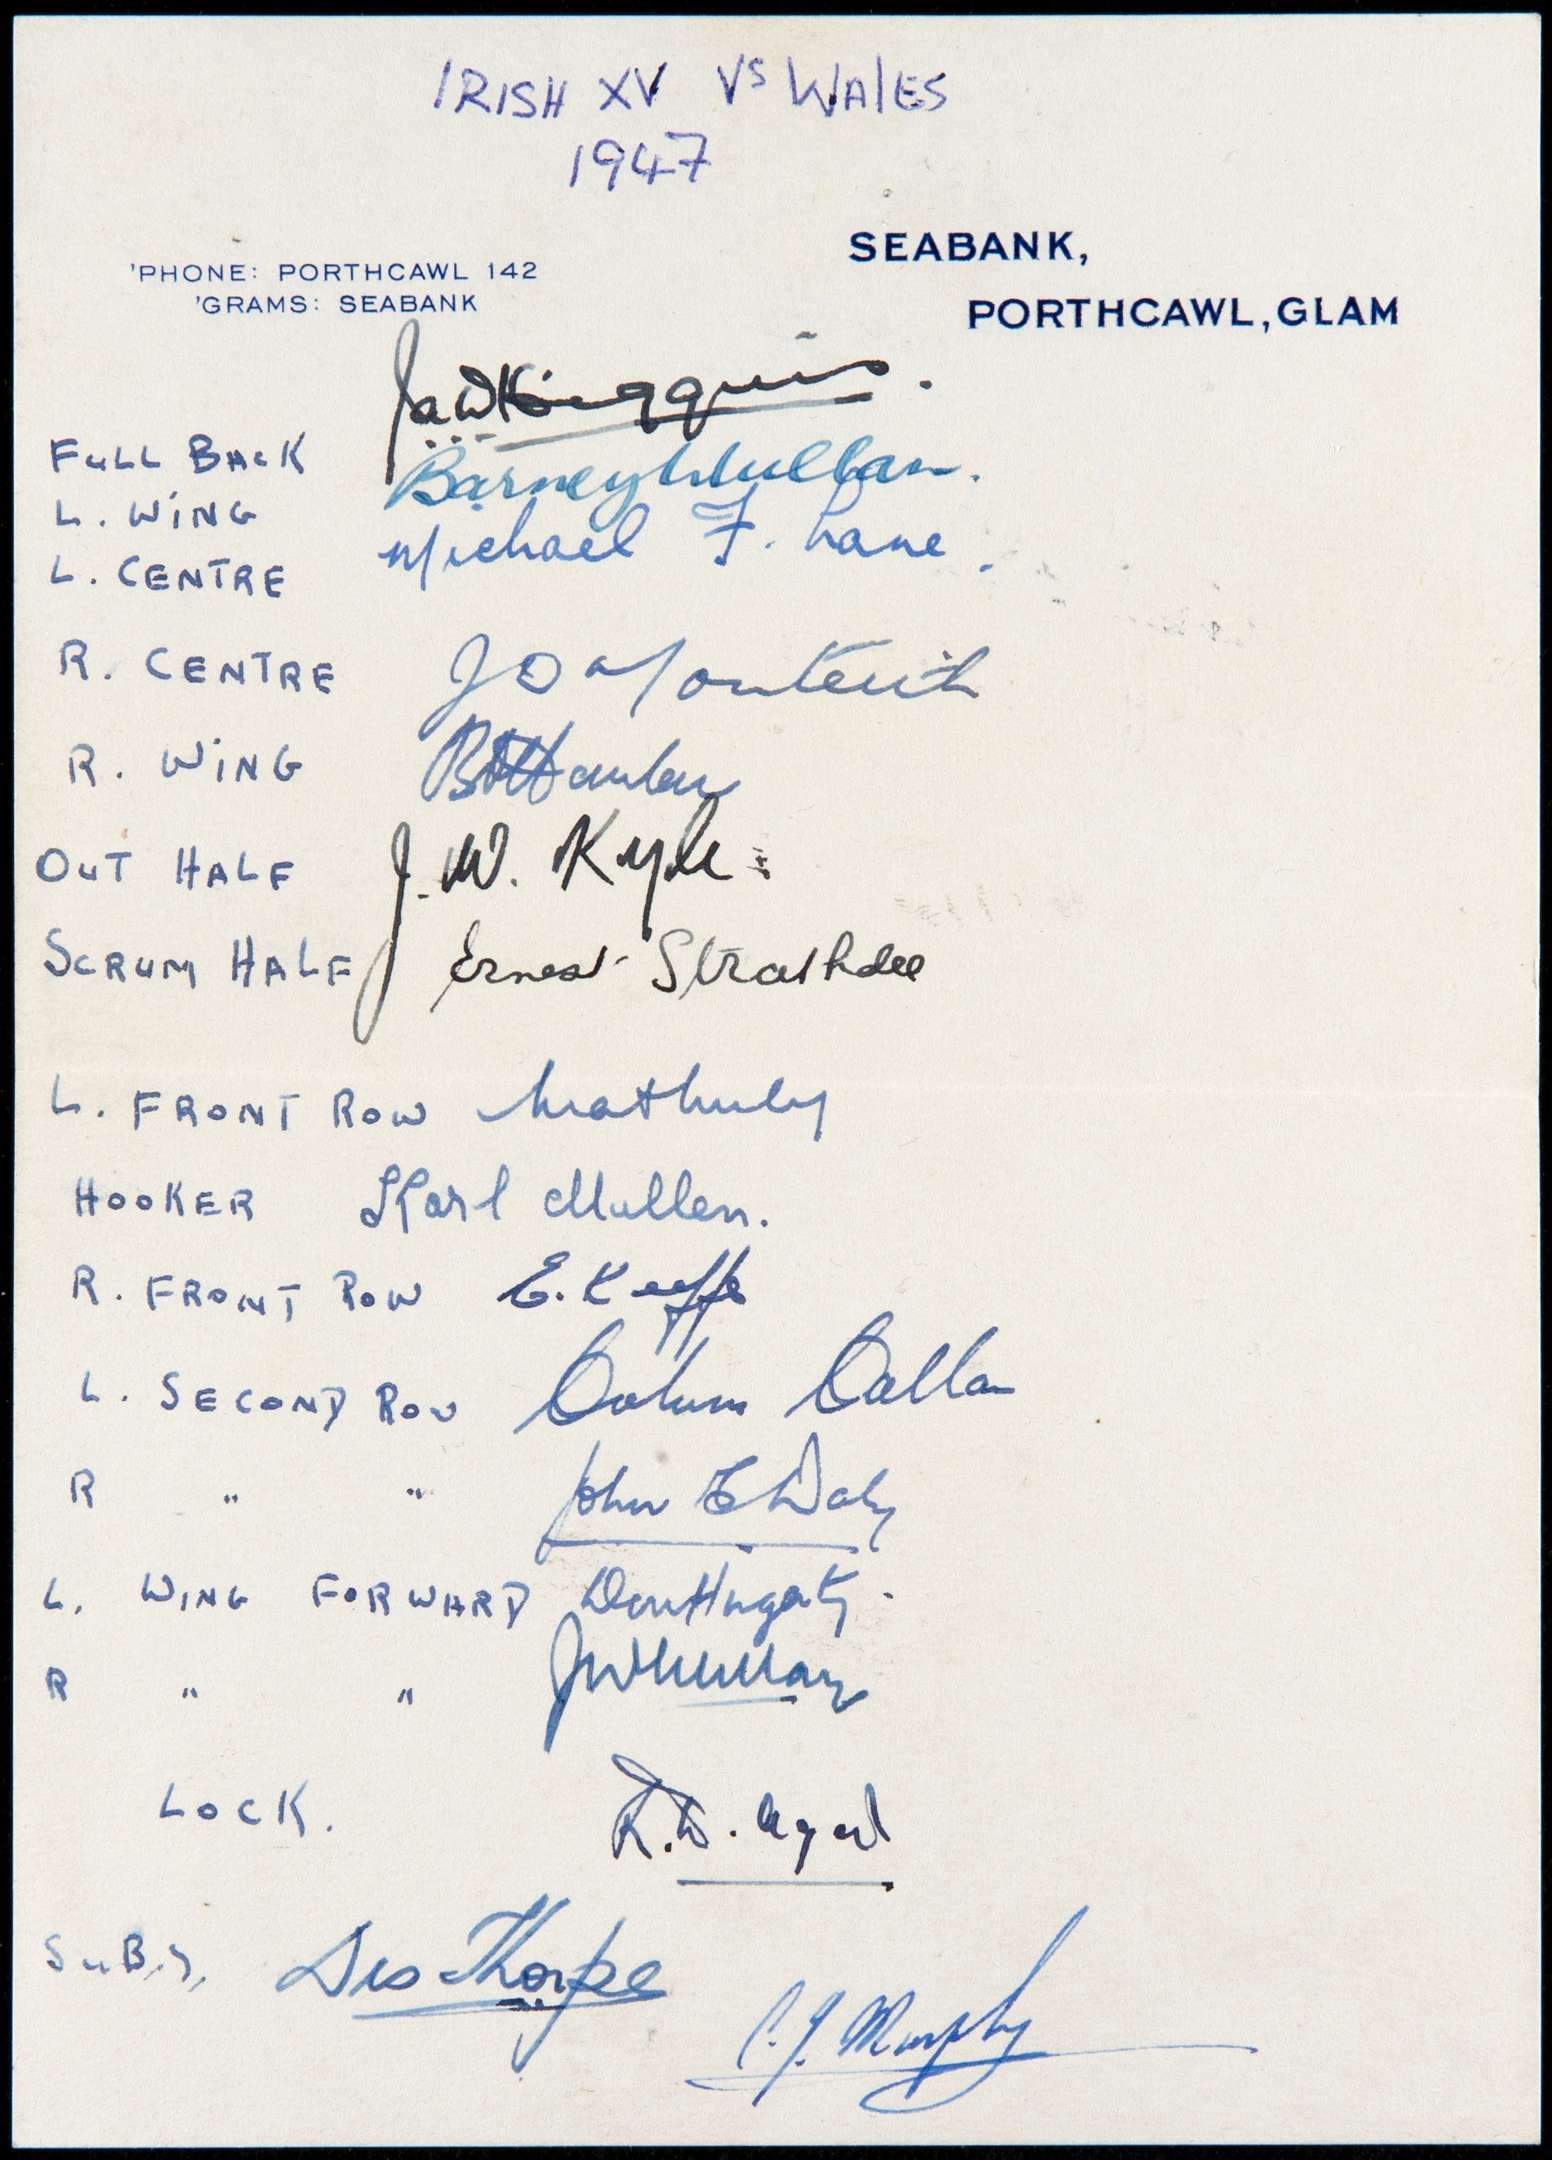 IRISH XV Vs WALES
1947
SEABANK,
'PHONE: PORTHCAWL 142
'GRAMS: SEABANK
PORTHCAWL, GLAM
FULL BACK
L. WING Barney Mullan.
L. CENTRE Michael F. Lane.
R. CENTRE J D Monteith
R. WING
OUT HALF J. W. Kyle
SCRUM HALF Ernest Strathdee
L. FRONT ROW
HOOKER Karl Mullen.
R. FRONT ROW E. Keeffe
L. SECOND ROW Colum Callan
R " " John C Daly
L. WING FORWARD Don Hingerty.
R " "
LOCK. R.D. Agar
SUBS, Des Thorpe
C. J. Murphy